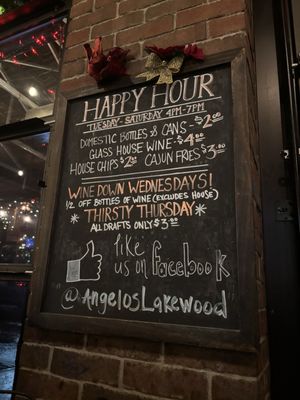 HAPPY HOUR
TUESDAY - SATURDAY 4PM-7PM
DOMESTIC BOTTLES & CANS - $2.00
GLASS HOUSE WINE - $4.00
HOUSE CHIPS $2.00 CAJUN FRIES $3.00
WINE DOWN WEDNESDAYS!
1/2 OFF BOTTLES OF WINE (EXCLUDES HOUSE)
THIRSTY THURSDAY
ALL DRAFTS ONLY $3.00
like
us on facebook
@AngelosLakewood